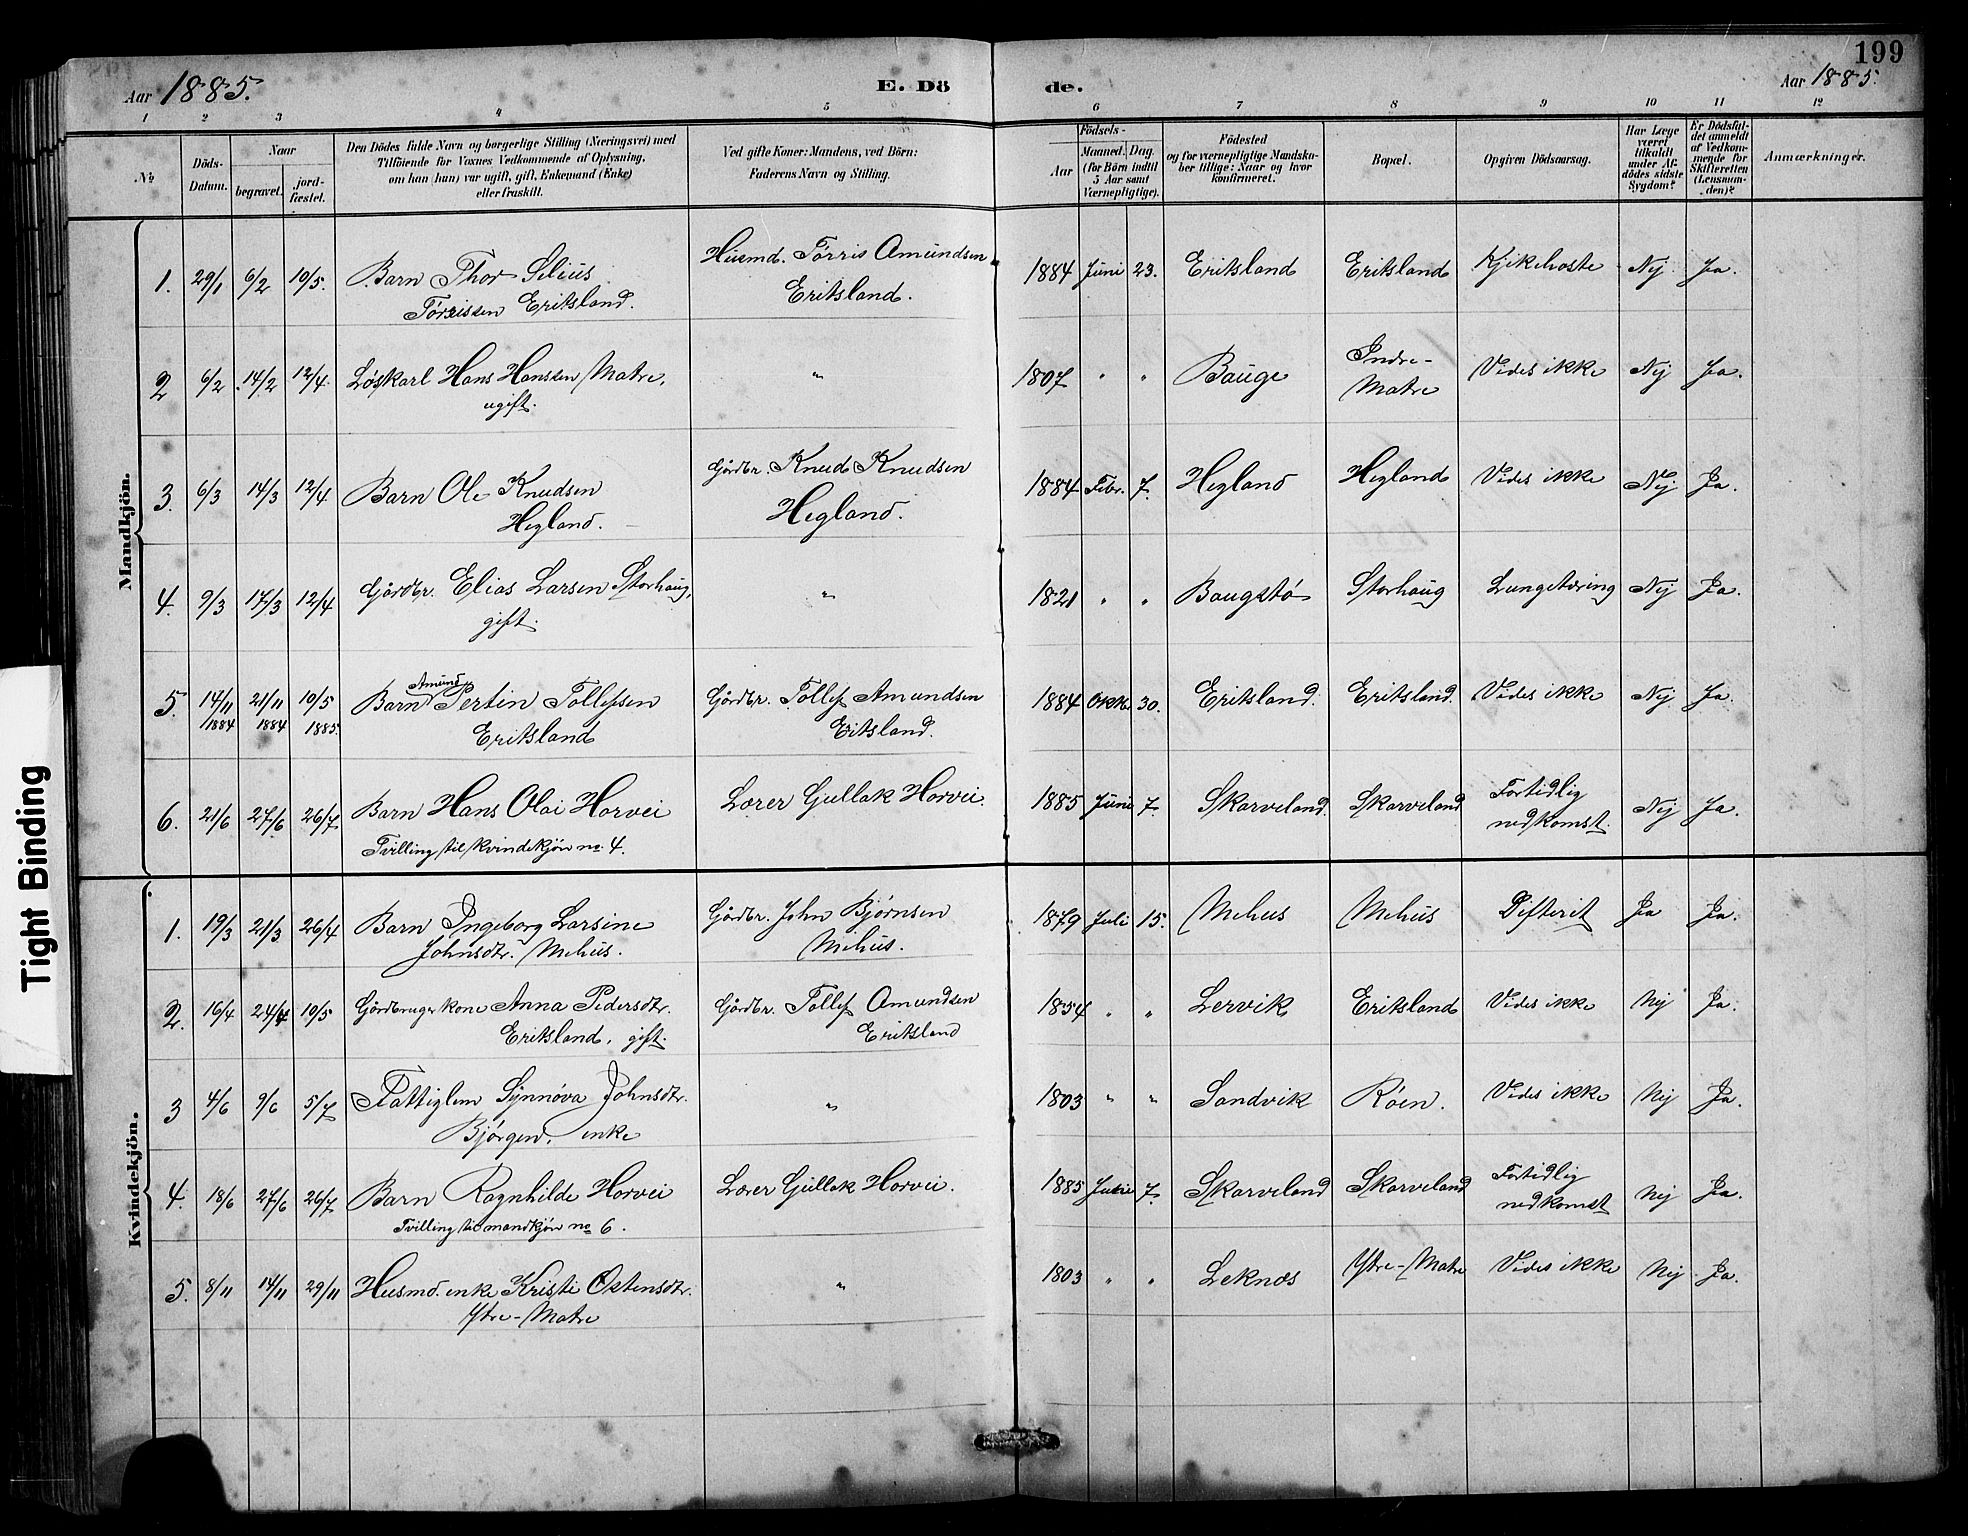 199
Aar 1885. E. Dö de. Aar 1885.
1 2 3 4 5 6 7 8 9 10 11 12
No
Döds-Datum.
Naar
begravet. jord-fæstet.
Den Dödes fulde Navn og borgerlige Stilling (Næringsvei) med
Tilföiende for Voxnes Vedkommende af Oplysning,
om han (hun) var ugift, gift, Enkemand (Enke)
eller fraskilt.
Ved gifte Koner: Mandens, ved Börn:
Faderens Navn og Stilling.
Födsels-
Aar
Maaned. Dag.
(for Börn indtil
5 Aar samt
Værnepligtige).
Födested
og for værnepligtige Mandska-
ber tillige: Naar og hvor
konfirmeret.
Bopæl.
Opgiven Dödsaarsag.
Har Læge
været
tilkaldt
under Af-
dödes sidste
Sygdom?
Er Dödsfal-
det anmeldt
af Vedkom-
mende for
Skifteretten
(Lensman-
den)?
Anmærkninger.
Mandkjön.
1. 29/1 6/2 10/5. Barn Thor Selius Husmd. Tørris Amundsen 1884 Juni 23. Eritsland Eritsland Kjikehoste Nej Ja.
Tørrissen Eritsland. Eritsland.
2 6/2 14/2 12/4. Løskarl Hans Hanssen Matre, " 1807 " " Bauge Indre-Matre Vides ikke Nej Ja.
ugift.
3. 6/3 14/3 12/4 Barn Ole Knudsen Gårdbr. Knud Knudsen 1884 Febr. 7. Hegland Hegland Vides ikke Nej Ja.
Hegland. Hegland.
4. 9/3 17/3 12/4 Gårdbr. Elias Larsen Storhaug, " 1821 " " Baugstø Storhaug Lungetæring Nej Ja.
gift.
5. 14/11 1884 21/11 1884 10/5 1885. Barn Amund Pertin Tollefsen Gårdbr. Tollef Amundsen 1884 Oktr. 30. Eritsland. Eritsland. Vides ikke Nej Ja.
Eritsland Eitsland.
6. 21/6 27/6 26/7 Barn Hans Olai Horvei Lærer Gullak Horvei. 1885 Juni 7. Skarveland. Skarveland Fortidlig nedkomst. Nej Ja.
Tvilling til kvindekjön no. 4.
Kvindekjön.
1. 19/3 21/3 26/4 Barn Ingeborg Larsine Gårdbr. John Bjørnsen 1879 Juli 15. Mehus Mehus Difterit Ja Ja.
Johnsdtr. Mehus. Mehus.
2. 16/4 24/4 19/5 Gårdbrugerkone Anna Pedersdtr. Gårdbr. Tollef Amundsen 1854 " " Lervik Eritsland Vides ikke Nej Ja.
Eritsland, gift. Eritsland
3 4/6 9/6 5/7 Fattiglem Synnøva Johnsdtr. " 1803 " " Sandvik Røen. Vides ikke Nej Ja.
Bjørgen, enke
4. 18/6 27/6 26/7 Barn Ragnhilde Horvei Lærer Gullak Horvei. 1885 Juni 7. Skarveland Skarveland Fortidlig nedkomst Nej Ja.
Tvilling til mandkjön no 6.
5. 8/11 14/11 29/11 Husmd. enke Kristi Ostensdtr. " 1803 " " Leknæs Ytre-Matre Vides ikke Nej Ja.
Ytre-Matre
Tight Binding